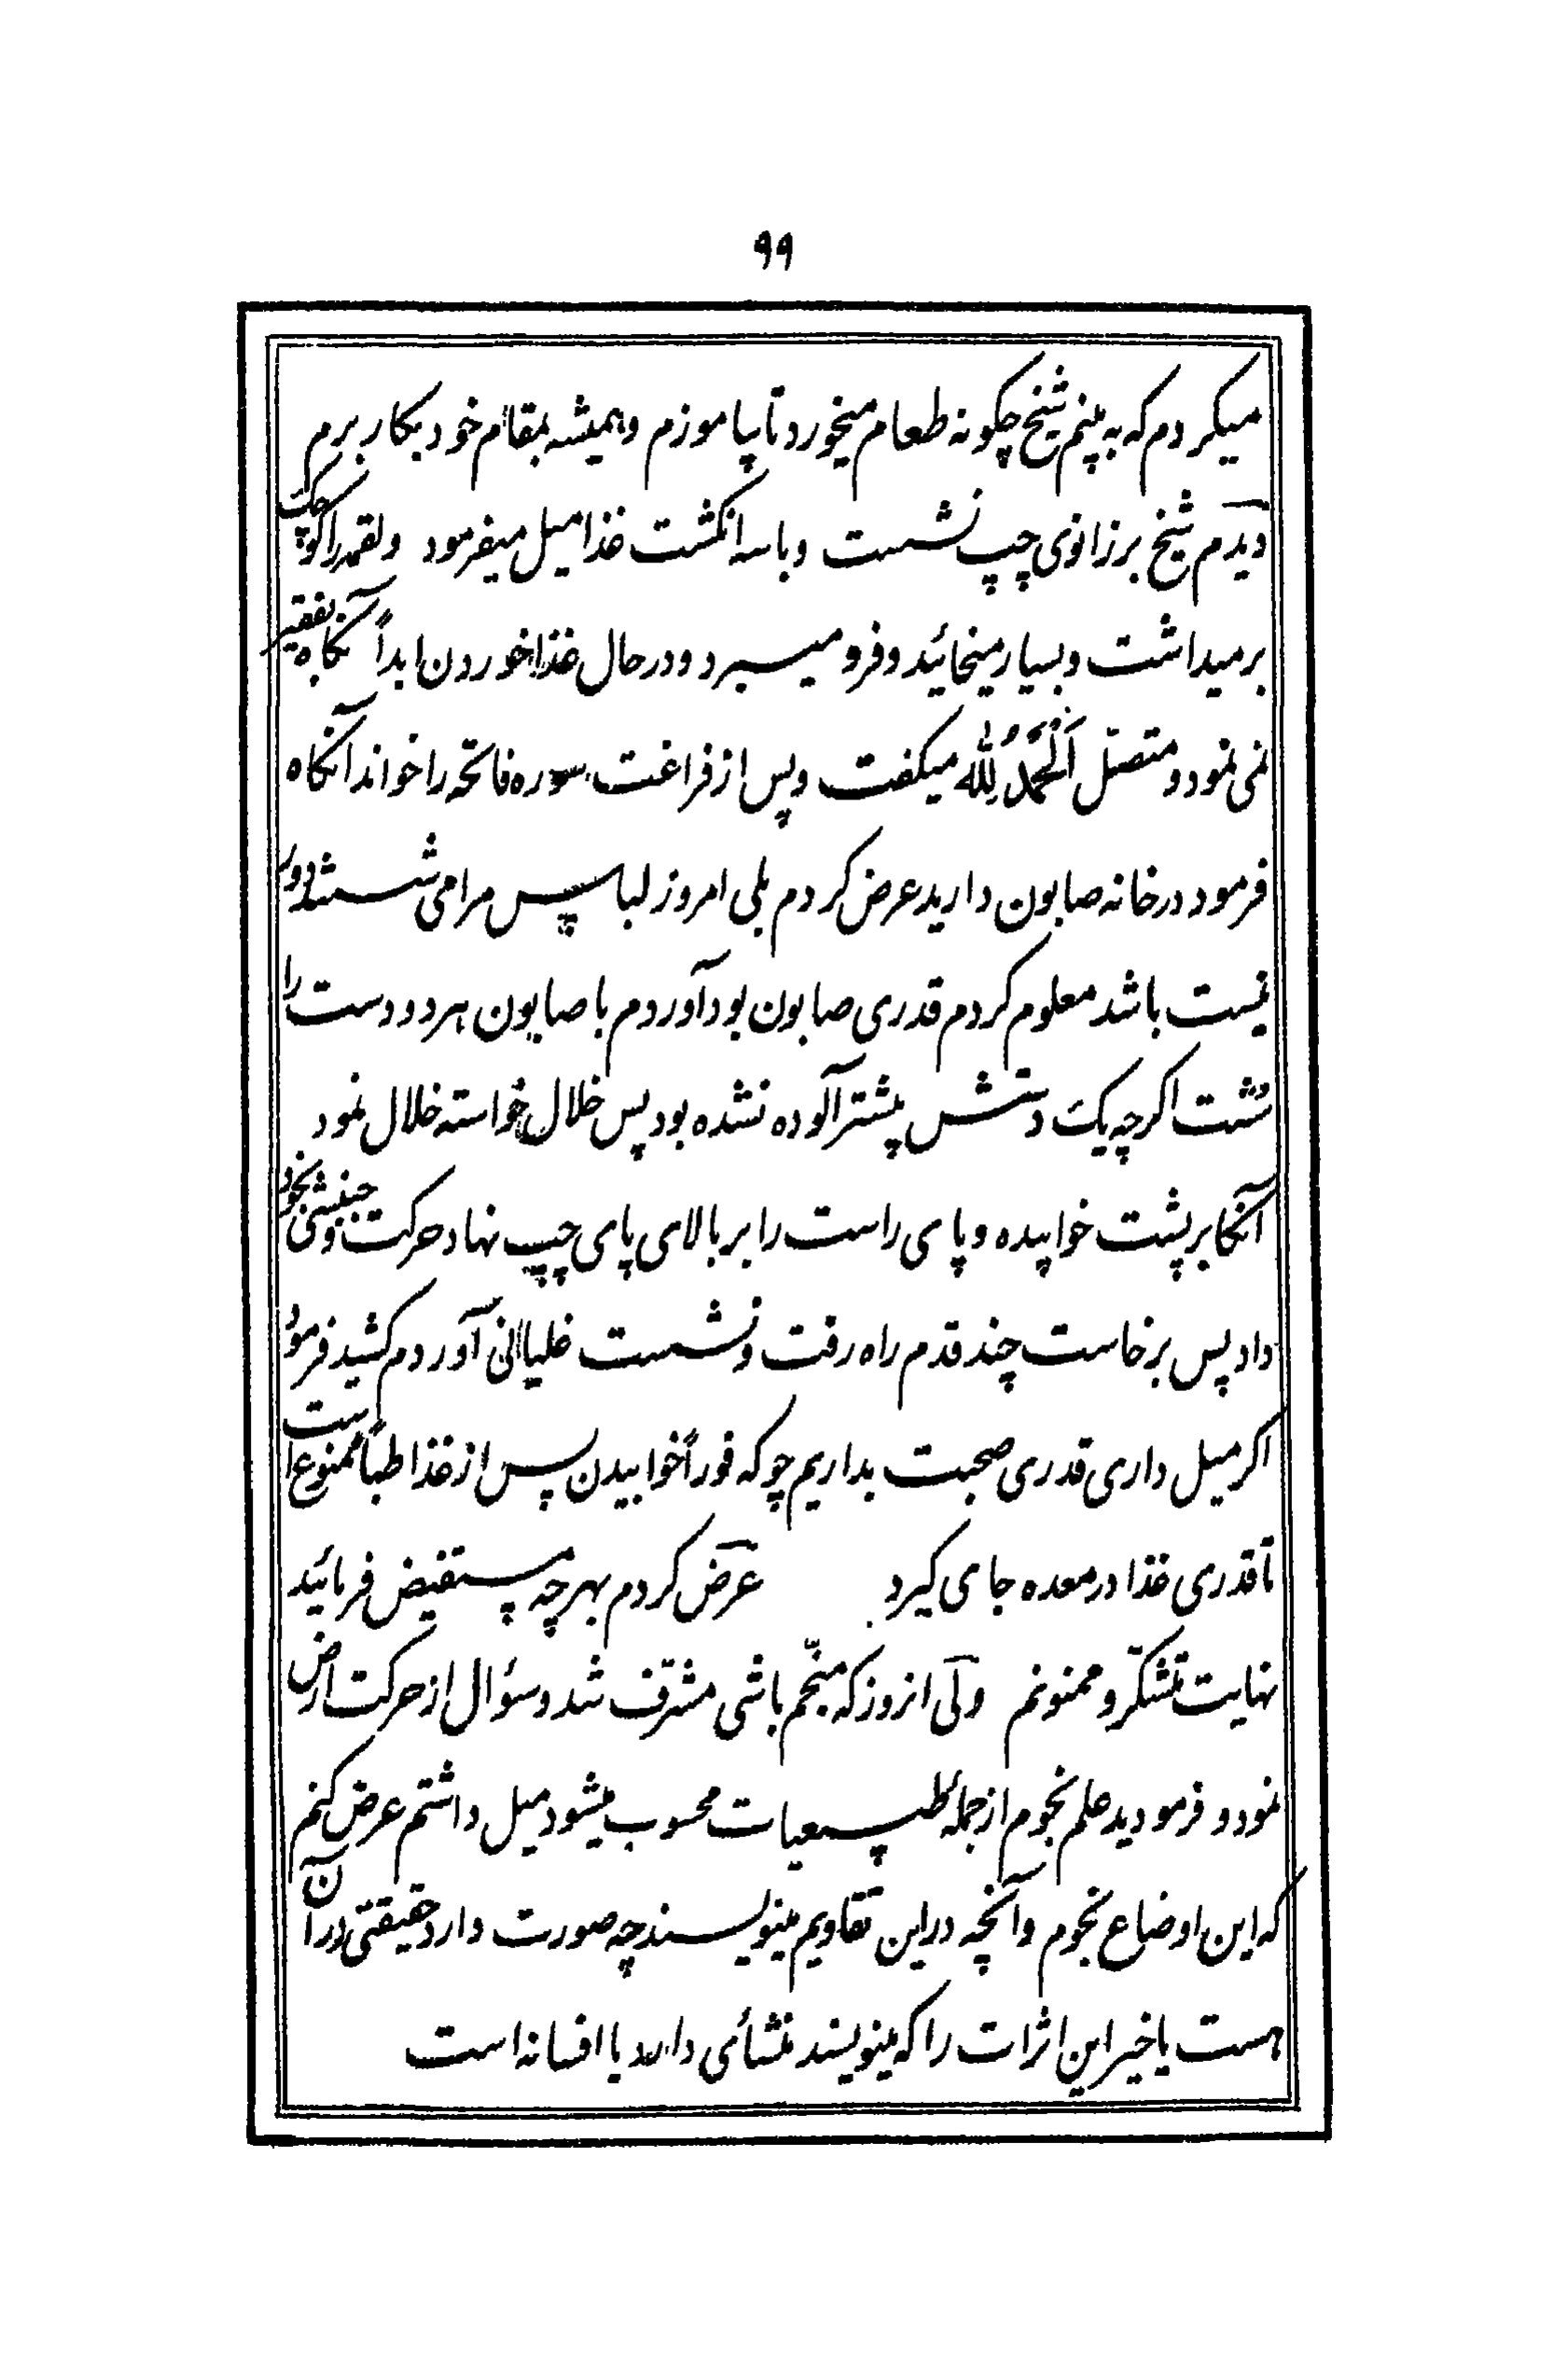 ۹۹
میکردم که به پینم شیخ چکونه طعام میخورد تا پیاموزم وهمیشه بمقام خود بکار برم
دیدم شیخ برزانوی چپ نشست وباسه انکشت غذا میل میفرمود ولقمه را کوچک
برمیداشت وبسیار میخائید وفرو میسبرد ودرحال غذا خوردن ابداً نکاه بفقیر
نمی نمود ومتصّل اَلْحَمْدُ لِلّٰه میکفت وپس از فراغت سوره فاتحه را خواند آنکاه
فرمود درخانه صابون دارید عرض کردم بلی امروز لباس مرا می شستند دور
نیست باشد معلوم کردم قدری صابون بود آوردم با صابون هردو دست را
شست اکرچه یک دستش پیشتر آلوده نشده بود پس خلال خواسته خلال نمود
آنکا برپشت خوابیده وپای راست را بربالای پای چپ نهاد حرکت وجنبشی بخود
داد پس برخاست چند قدم راه رفت ونشست غلیانی آوردم کشید فرمود
اکر میل داری قدری صحبت بداریم چو که فوراً خوابیدن پس از غذا طباً ممنوع است
تا قدری غذا درمعده جای کیرد عرض کردم بهرچه مستفیض فرمائید
نهایت تشکّر و ممنونم ولی انروز که منجّم باشی مشرّف شد وسؤال از حرکت ارض
نمود و فرمودید علم نجوم ازجملهٔ طبیعیات محسوب میشود میل داشتم عرض کنم
که این اوضاع نجوم وآنچه دراین تقاویم مینویسند چه صورت دارد حقیقتی درآن
هست یا خیر این اثرات را که مینویسند منشأی دارد یا افسانه است